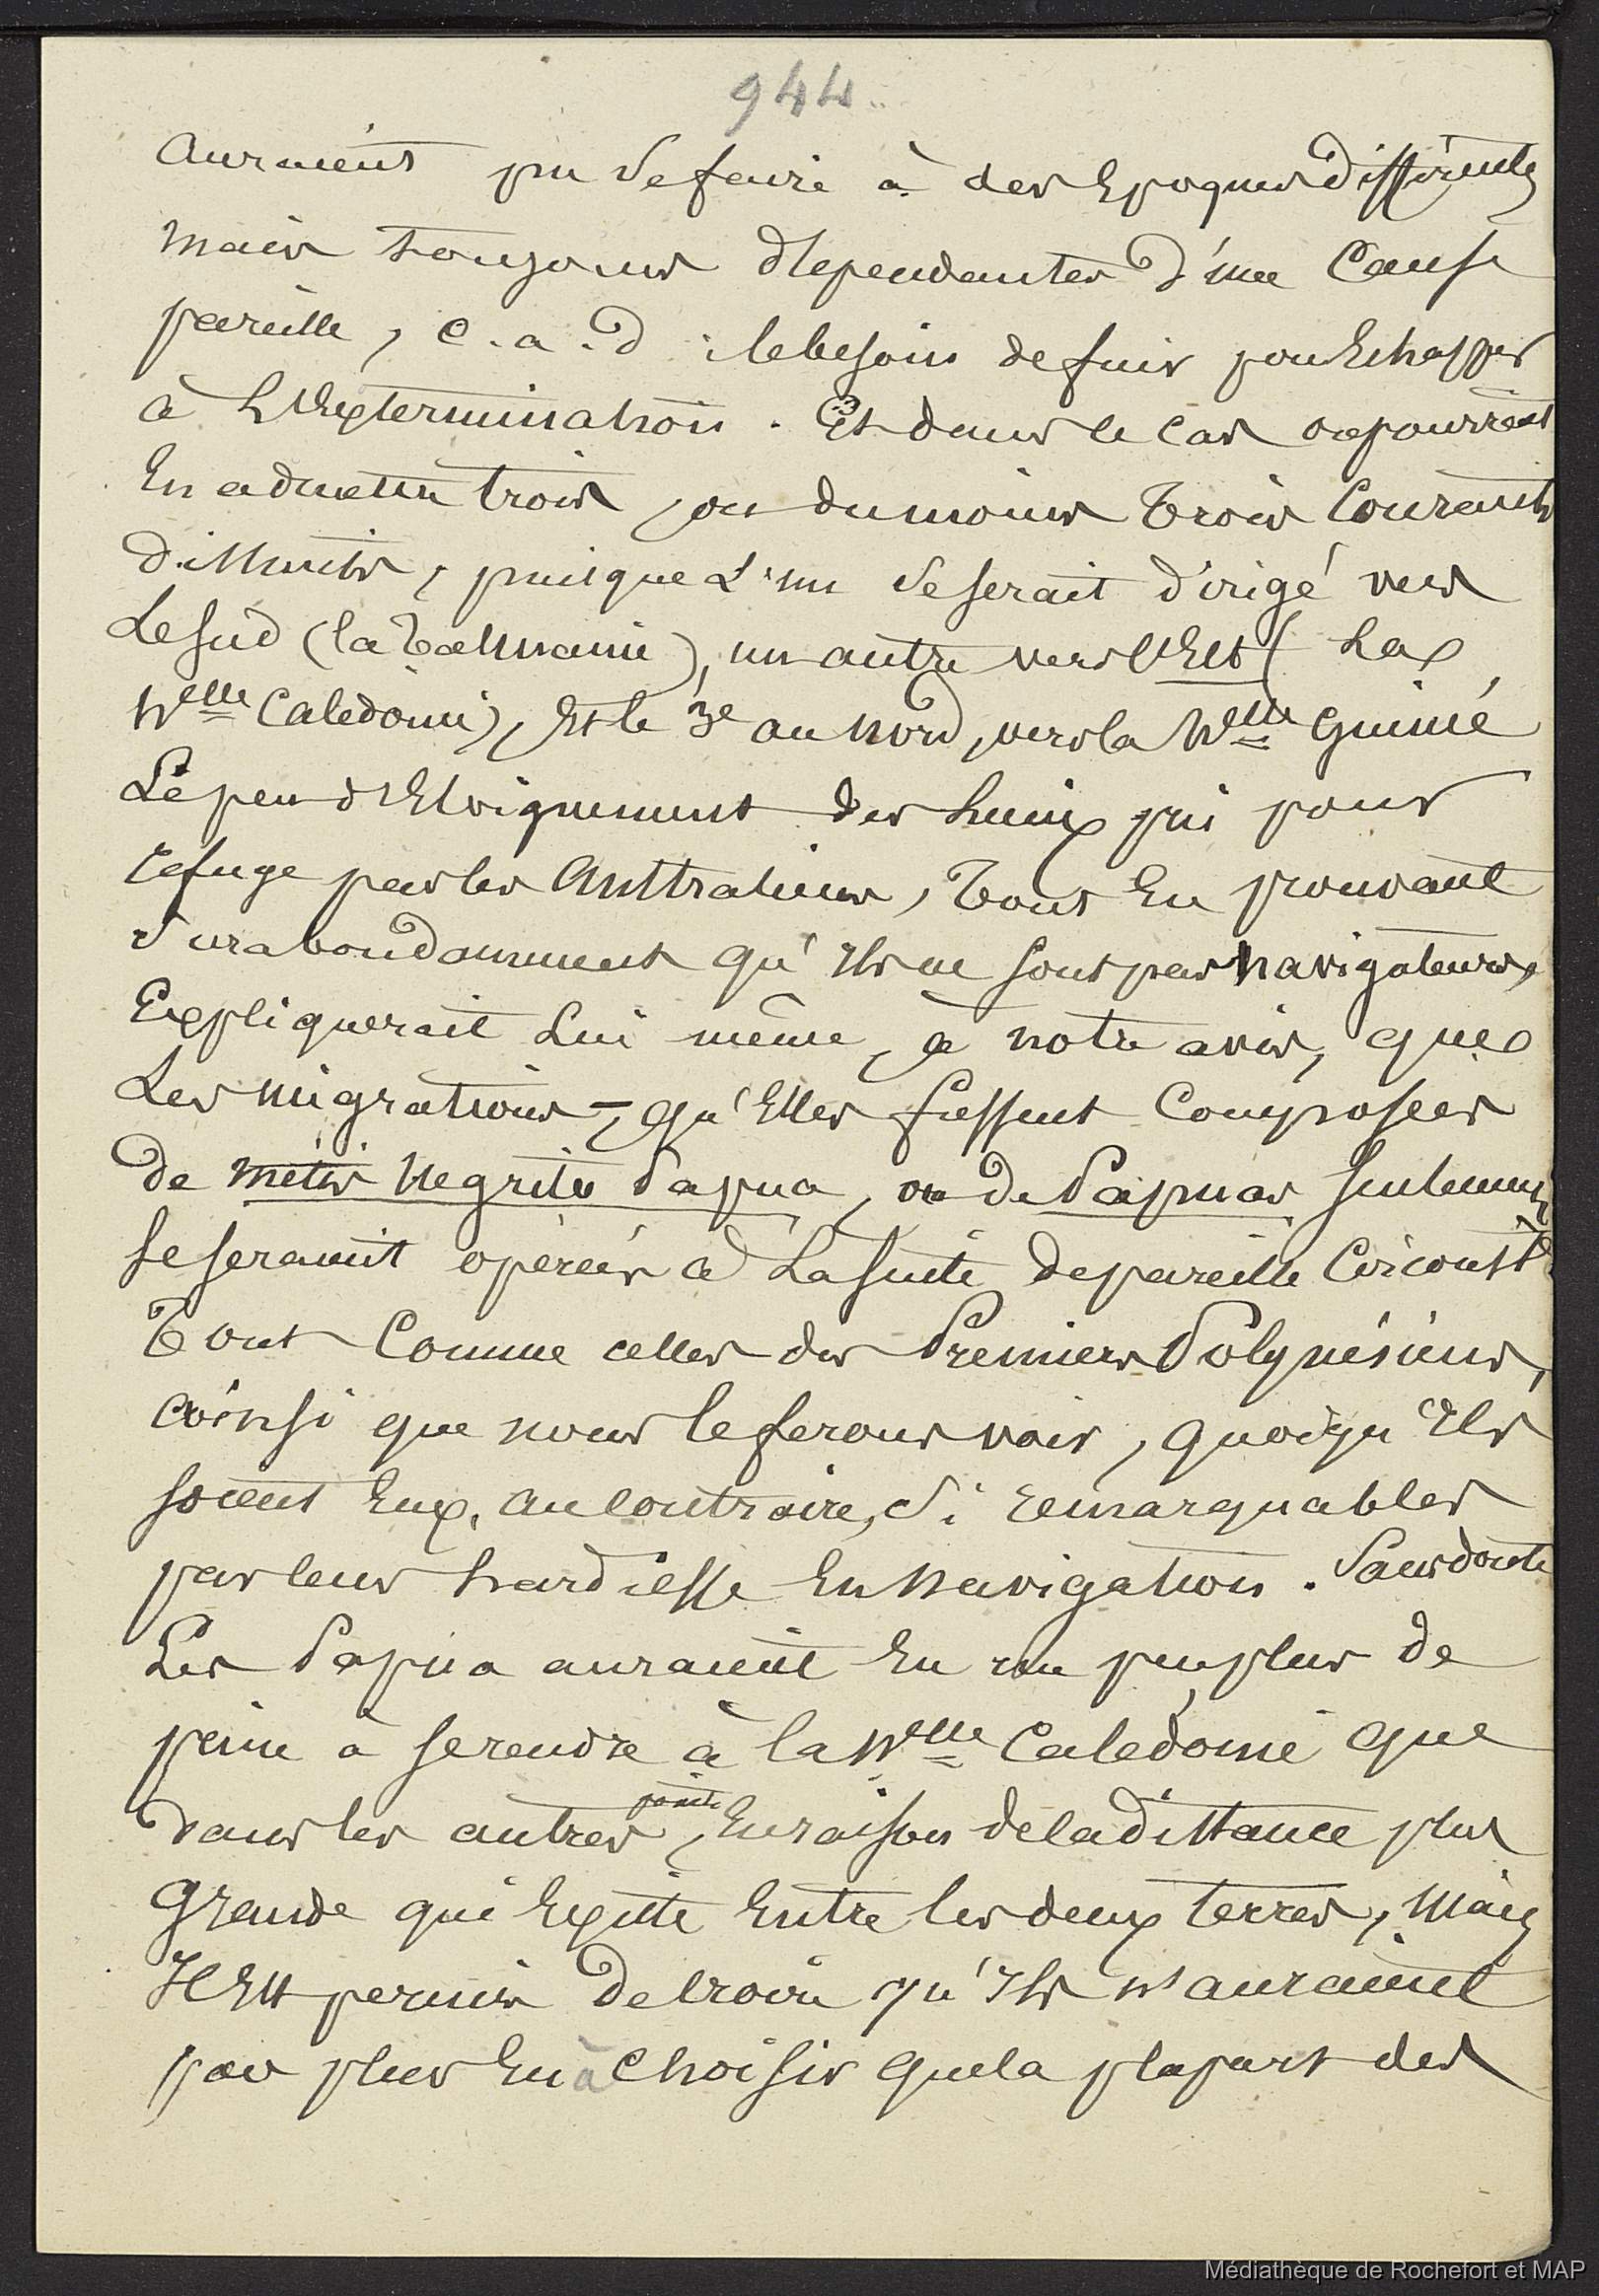 944
auraient pu se faire à des Epoques différentes
mais toujours dependantes d'une Cause
pareille, c.a.d : le besoin de fuir pour Echapper
à L'Extermination. Et dans le cas on pourrait
En admettre trois, ou du moins trois Courants
distincts, puisque L'un se serait dirigé vers
Le sud (la tasmanie), un autre vers l'Est (La
Nelle Caledonie), Et le 3e au nord, vers la Nelle Guinée
Le peu d'Eloignement des lieux pris pour
refuge par les Australiens, tout En prouvant
surabondamment qu'Ils ne sont pas navigateurs,
Expliquerait Lui même, à notre avis, que
Les migrations, qu'Elles fussent Composées
de métis Negrito Papua, ou de Papuas seulement
se seraient opérées à La suite de pareille Circonstce
Tout Comme celles des Premiers Polynésiens,
ainsi que nous le ferons voir, quoiqu'Ils
soient Eux, au Contraire, si remarquables
par leur hardiesse En navigation. Sans doute
Les Papua auraient Eu un peu plus de
peine à se rendre à la Nelle Caledonie que
dans les autres points, En raison de la distance plus
Grande qui Existe Entre les deux terres, Mais
Il Est permis de Croire qu'Ils n'auraient
pas plus Eu à Choisir que la plupart des
Médiathèque de Rochefort et MAP